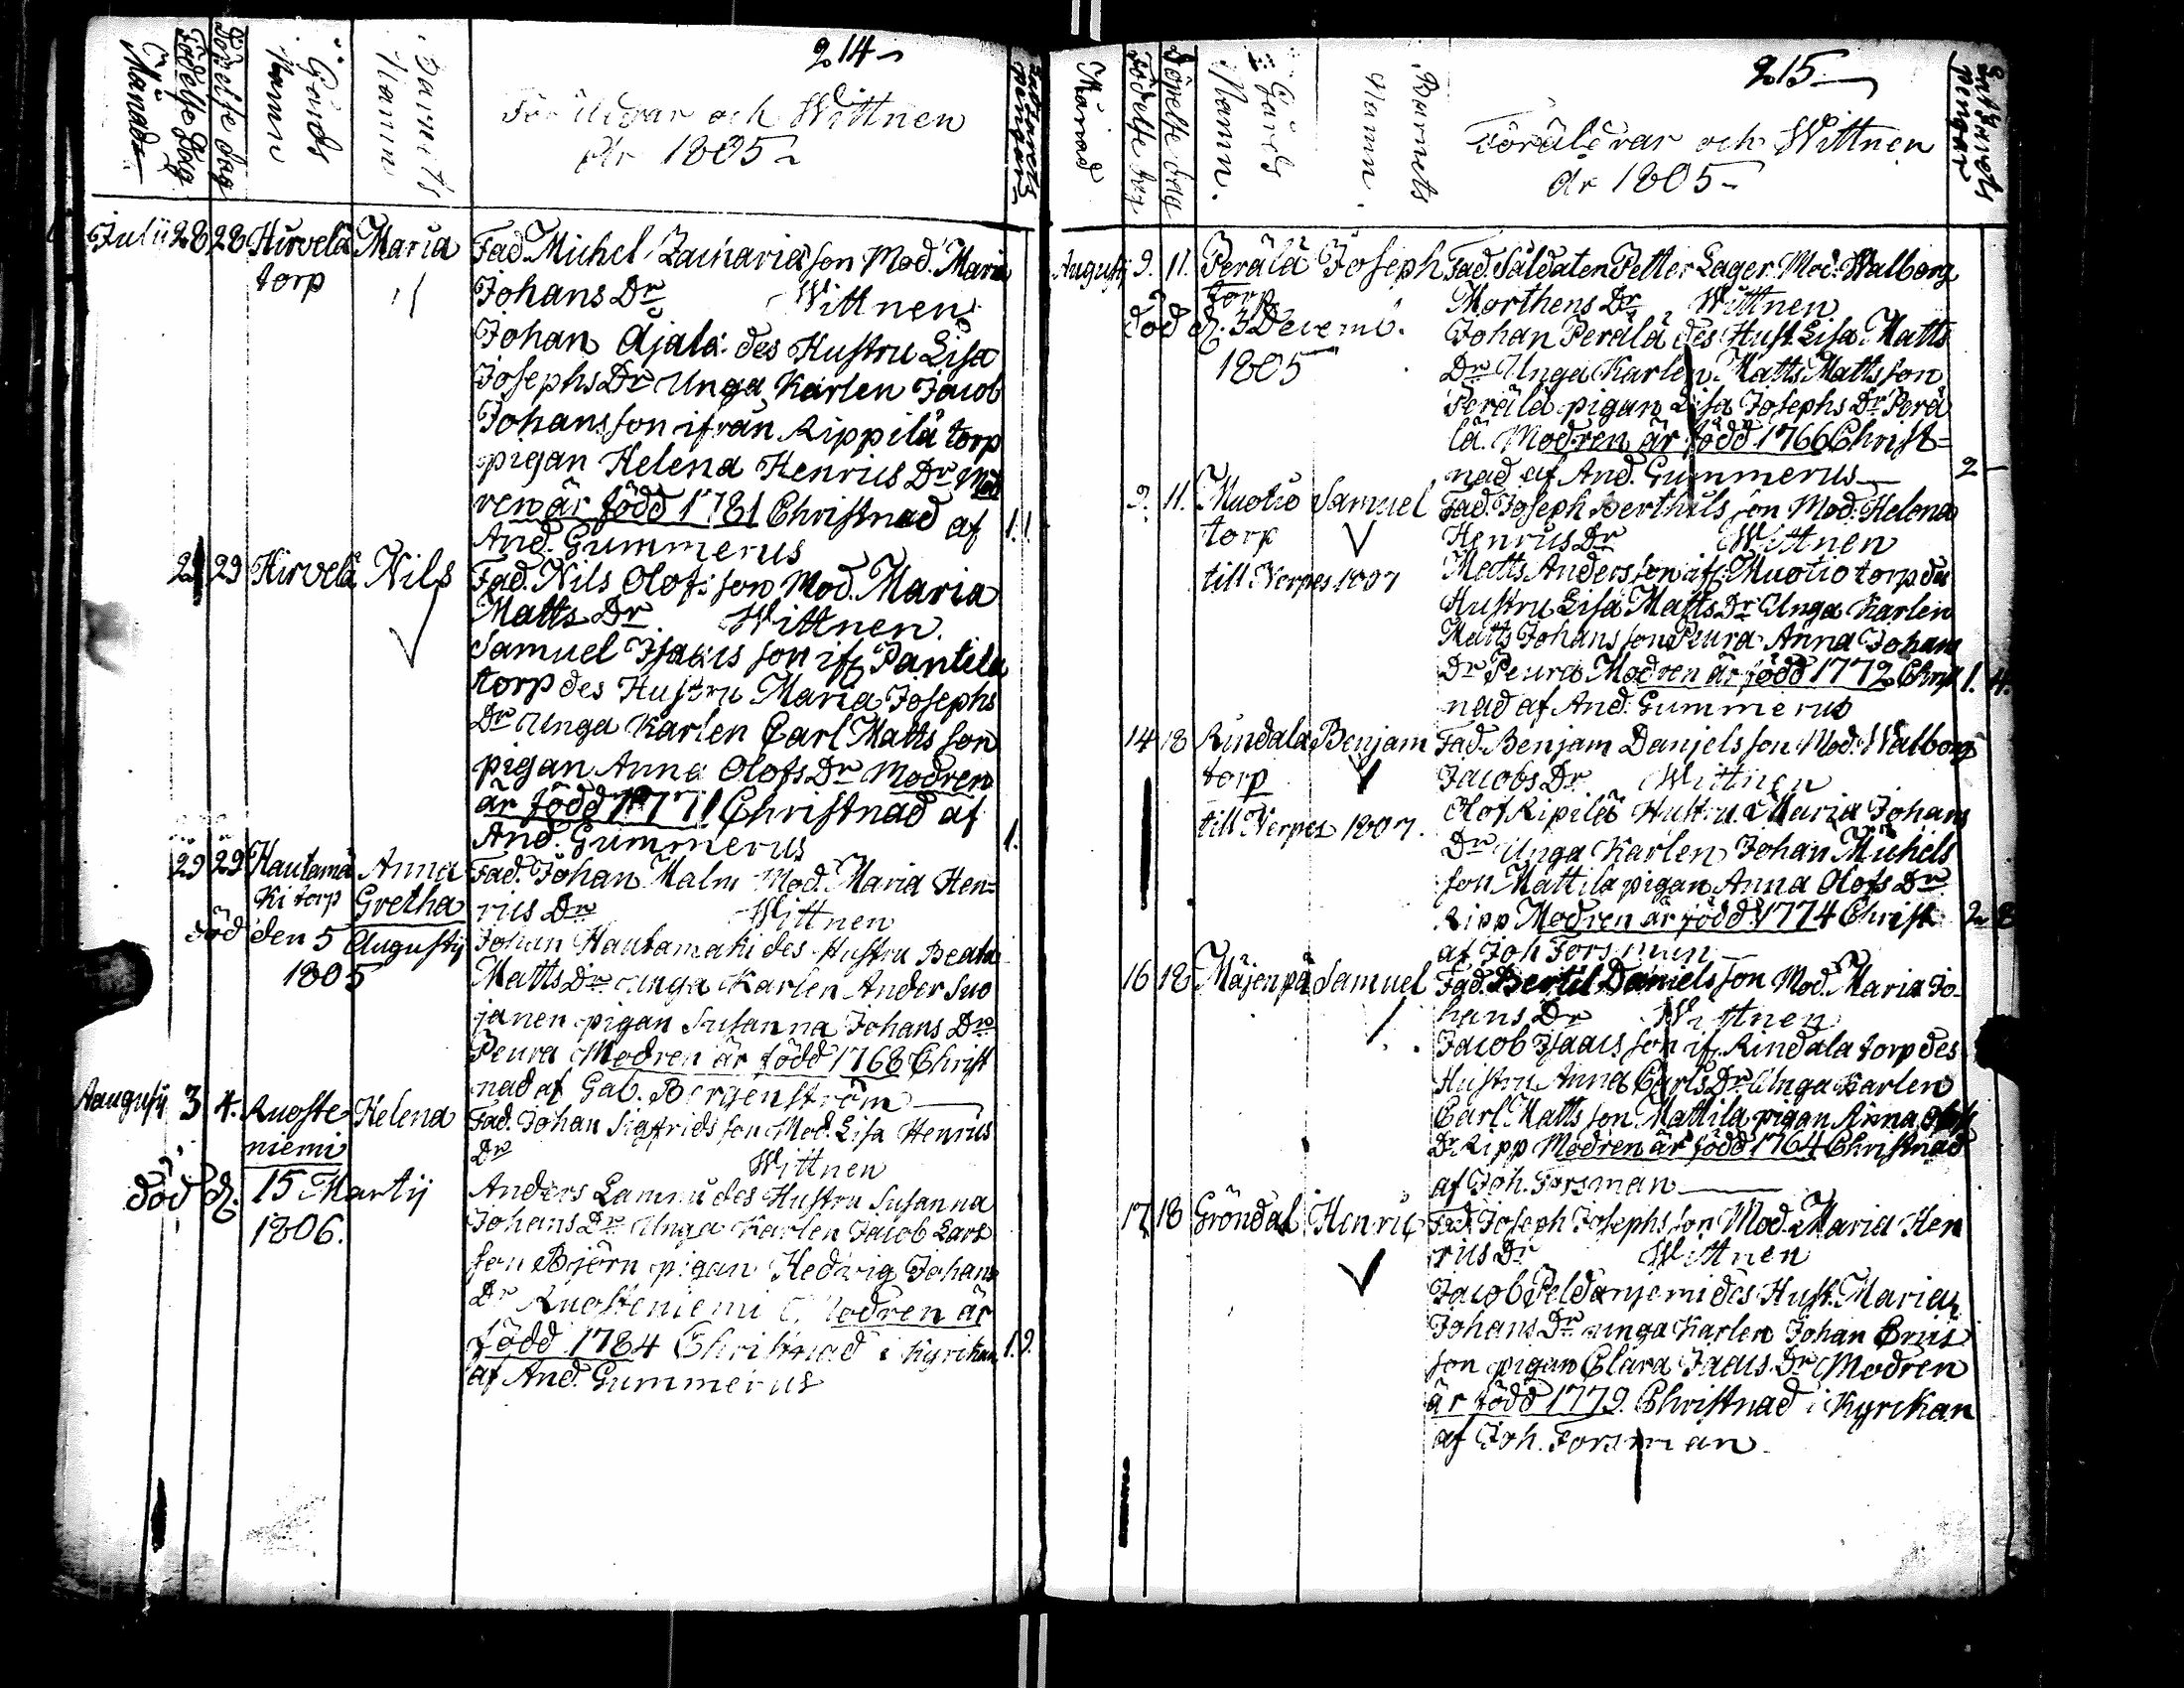 214
Månad
Födelse Dag
Döpelse dag
Gårds Namn
Barnets Namn
Föräldrar och Wittnen
År 1805
July 28 28 Hirvelä Maria Fad. Michel Zacharias son Mod. Maria
torp Johans Dr Wittnen
Johan Ajala des Hustru Lisa
Josephs Dr Unga Karlen Jacob
Johansson ifrån Rippilä torp
pigan Helena Henrics Dr Mod
ren är född 1781 Christnad af 1.1.
And. Gummerus
29 Hirvelä Nils Fad. Nils Olofs son Mod. Maria
Matts Dr Wittnen
Samuel Isaacs son if Pantila
torp des Hustru Maria Josephs
Dr Unga Karlen Carl Matts son
pigan Anna Olofs Dr Modren
är född 1771 Christnad af
And. Gummerus 1.
29 29 Hautamä Anna Fad. Johan Malm Mod. Maria Hen=
ki torp Gretha rics Dr Wittnen
död den 5 Augustij Johan Hautamäki des Hustru Beata
1805 Matts Dr unga Karlen Ander Suo
janen pigan Susanna Johans Dr
Peura Modren är född 1768 Christ
nad af Gab. Bergenström
Augustij 3 4. Ruoste Helena Fad. Johan Sigfrids son Mod. Lisa Henrics
niemi Dr Wittnen
död d. 15 Martij Anders Lammi des Hustru Susanna
1806. Johans Dr Unga Karlen Jacob Lars
son Björn pigan Hedvig Johans
Dr Ruosteniemi Modren är
född 1784 Christnad i Kyrkan 1.9.
af And. Gummerus
215
Månad
Födelse dag
Döpelse dag
Gårds Namn.
Barnets Namn.
Föräldrar och Wittnen
År 1805
Enkornets pengar
Augustij 9. 11. Perälä Joseph Fad. Saldaten Petter Lager Mod. Walborg
torp Morthens Dr Wittnen
död d. 3 Decemb. Johan Perälä des Hust. Lisa Matts
1805 Dr Unga Karlen Matts Matts son
Perälä pigan Lisa Josephs Dr Perä
lä. Modren är född 1766 Christ=
nad af And. Gummerus 2
9. 11. Muotio Samuel Fad. Joseph Berthils son Mod. Helena
torp Henrics Dr Wittnen
till Nerpes 1807 Matts Anders son if. Muotio torp des
Hustru Lisa Matts Dr Unga Karlen
Matts Johans son Peura Anna Johans
Dr Peura Modren är född 1772 Christ 1. 4.
nad af And. Gummerus
14 18 Rindala Benjam Fad. Benjam Danjels son Mod. Walborg
torp Jacobs Dr Wittnen
till Nerpes 1807. Olof Ripilä Hustru Maria Johans
Dr Unga Karlen Johan Michels
son Mattila pigan Anna Olofs Dr
Ripp Modren är född 1774 Christ 2. 8
af Joh Forsman
16 18 Mäjenpä Samuel Fad. Bertil Daniels son Mod. Maria Jo=
hans Dr Wittnen
Jacob Isaacs son if. Rindala torp des
Hustru Anna Carls Dr Unga Karlen
Carl Matts son Mattila pigan Anna Olofs
Dr Ripp Modren är född 1764 Christnad
af Joh. Forsman
17 18 Gröndal Henric Fad. Joseph Josephs son Mod. Maria Hen
rics Dr Wittnen
Jacob Peldonjemi des Hust. Maria
Johans Dr unga Karlen Johan Erics
son pigan Clara Isacs Dr Modren
är född 1779. Christnad i Kyrkan
af Joh. Forsman